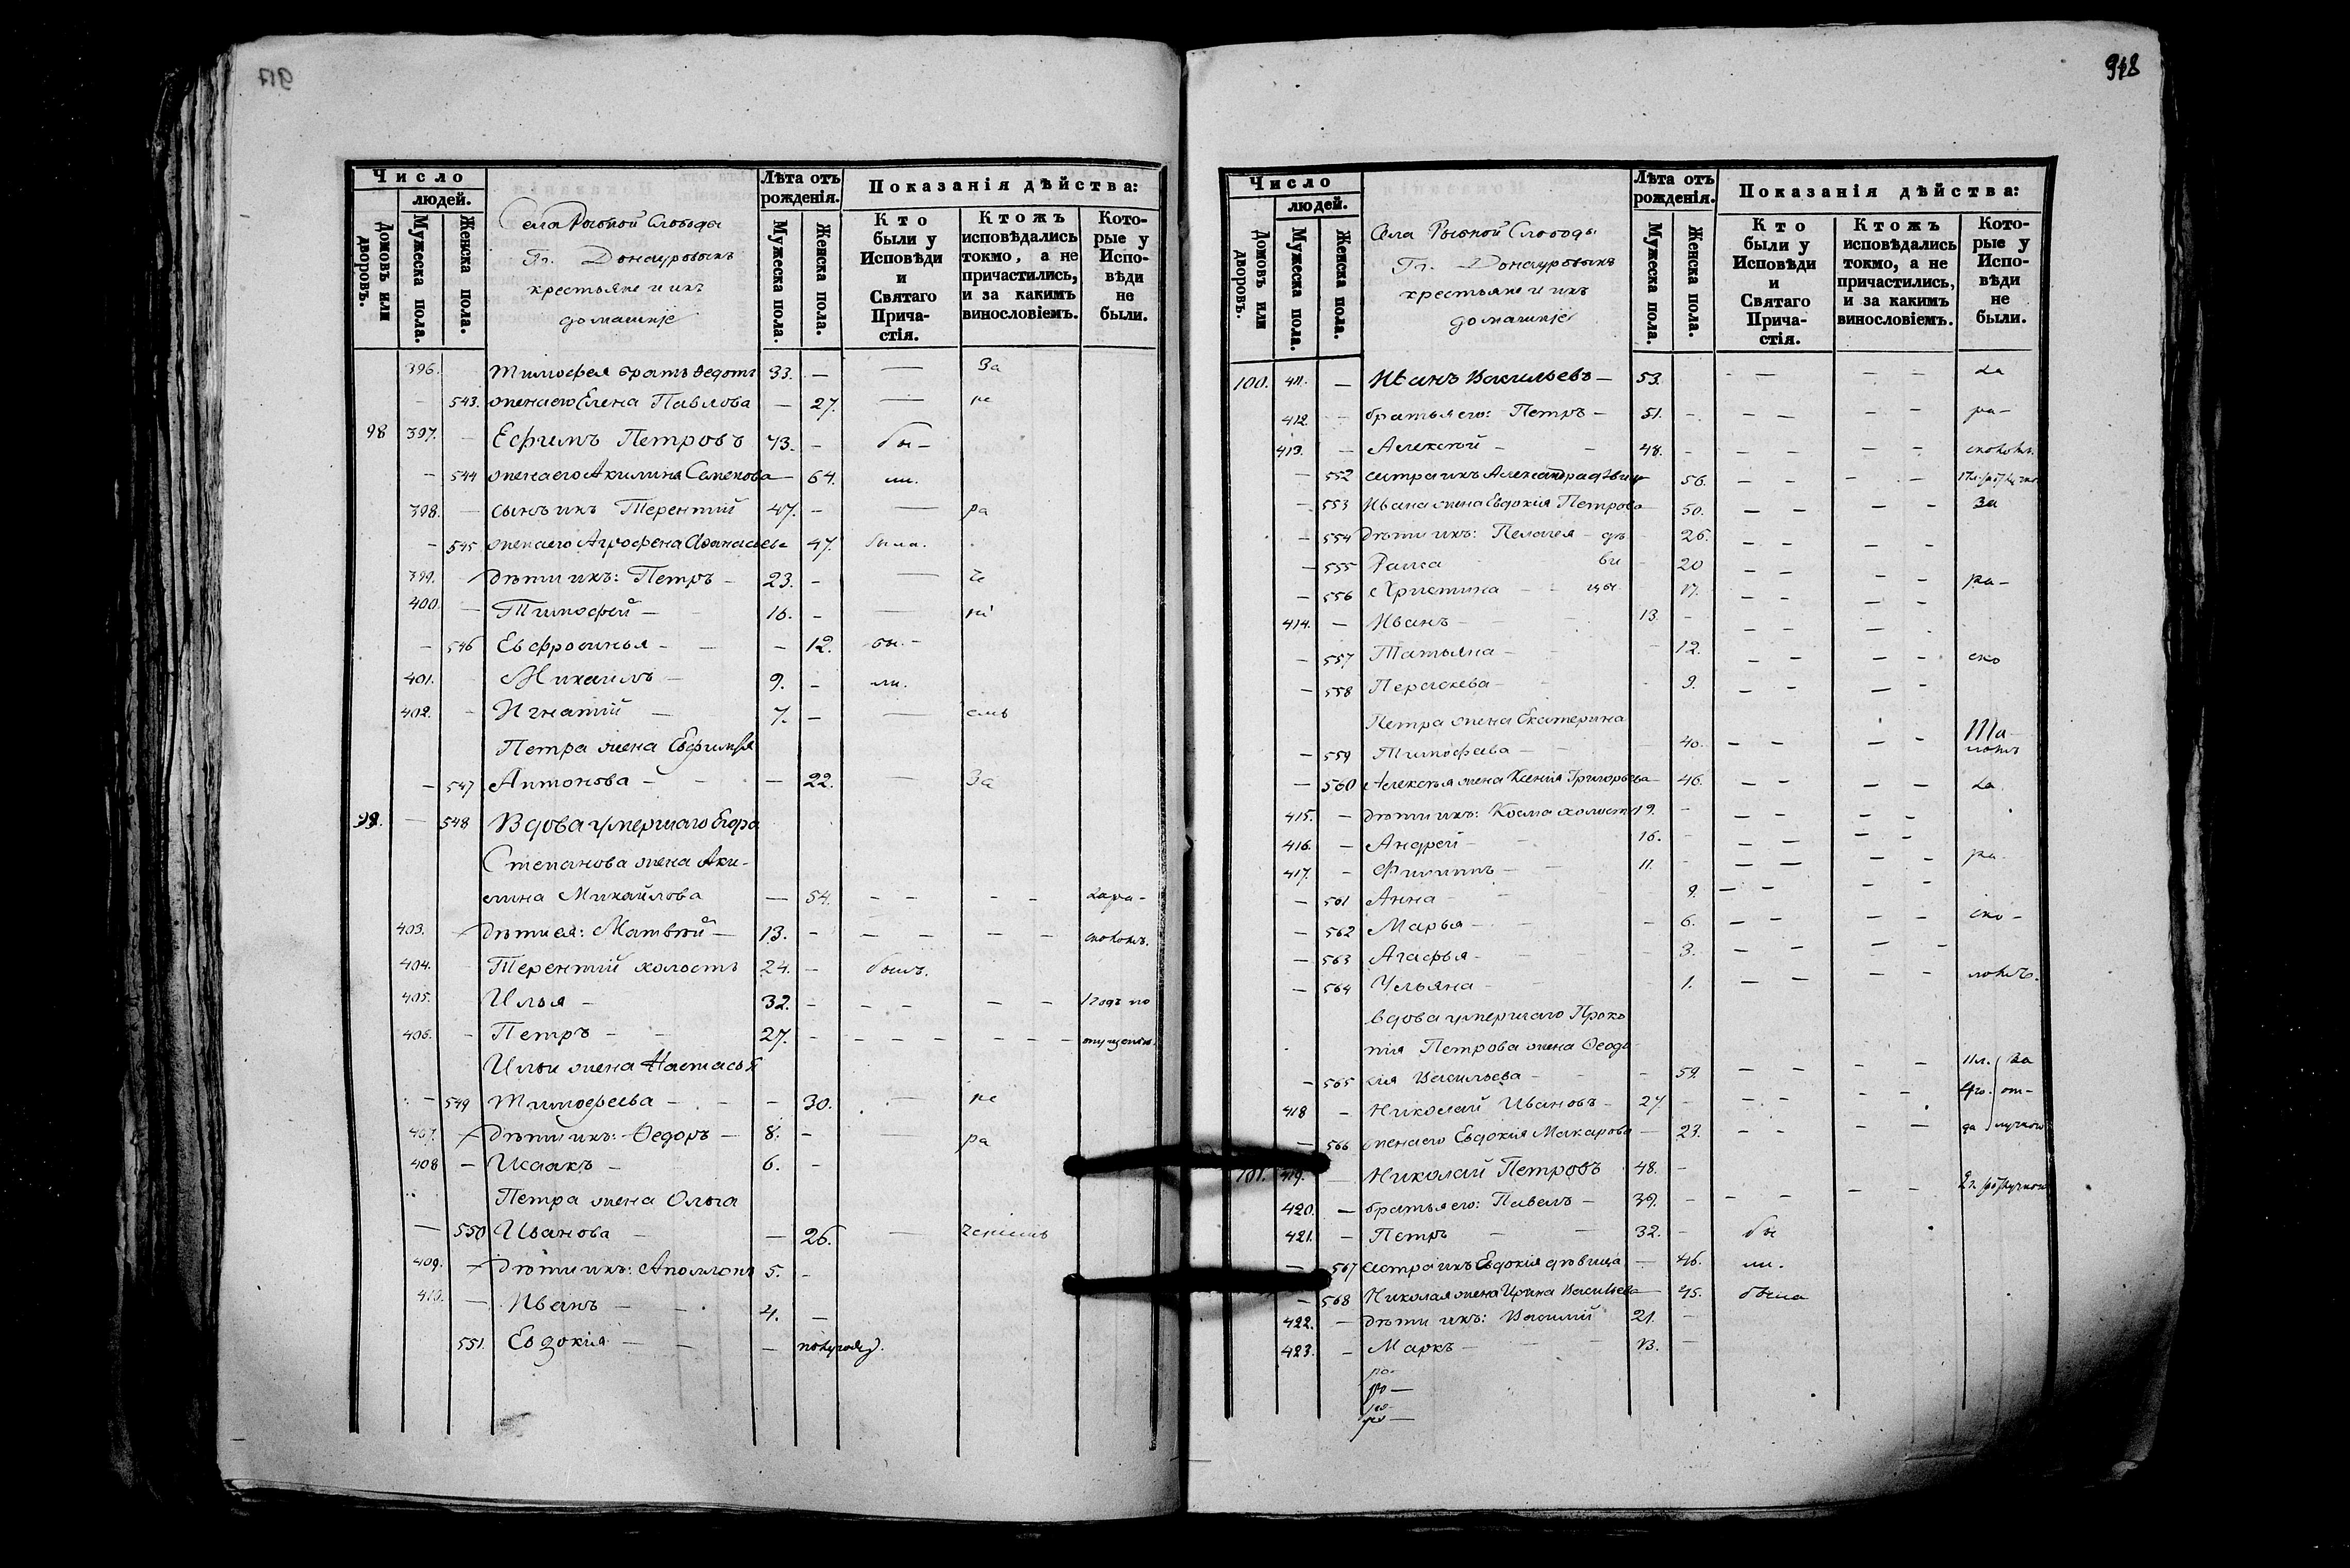 917
Число
людей.
Домовъ или дворовъ.
Мужеска пола.
Женска пола.
Села Рыбной Слободы
Гг. Донауровыхъ
крестьяне и ихъ
домашніе
Лѣта отъ рожденія.
Мужеска пола.
Женска пола.
Показанія дѣйства:
Кто были у Исповѣди и Святаго Причастія.
Ктожъ исповѣдались токмо, а не причастились, и за какимъ винословіемъ.
Которые у Исповѣди не были.
396. Тимофея братъ Ѳедотъ 33. — — За
543. жена его Елена Павлова — 27. — ре
98 397. — Ефимъ Петровъ 73. — бы-
— 544 жена его Акилина Семенова — 64. ли.
398. — сынъ ихъ Терентій 47. — — ра
— 545 жена его Агрофена Аѳанасьева 47. была.
399. — дѣти ихъ: Петръ — 23. — —
400. — Тимофей — 16. — —
— 546 Евфросинья — — 12. бы-
401. Михаилъ — 9. — ли.
402. — Игнатій — 7. — — емъ
Петра жена Евфимія
— 547 Антонова — — 22. — За
99. — 548 Вдова умершаго Егора
Степанова жена Аки-
лина Михайлова — 54. — — — —
403. — дѣти ея: Матвѣй — 13. — — — — —
404. — Терентій холостъ 24. — былъ.
405. Илья — 32. — — — — — 1 годъ по
406. — Петръ — 27. — — — — — —
Ильи жена Настасья
— 549 Тимофеева — — — 30. — ре
407. — дѣти ихъ: Ѳедоръ — 8. — — ра
408 — Исаакъ — 6. —
Петра жена Ольга
— 550 Иванова — — 26. —
409. — дѣти ихъ: Аполлонъ 5. —
410. — Иванъ — 4. —
551. Евдокія — — —
918
Число
людей.
Домовъ или дворовъ.
Мужеска пола.
Женска пола.
Села Рыбной Слободы
Гг. Донауровыхъ
крестьяне и ихъ
домашніе
Лѣта отъ рожденія.
Мужеска пола.
Женска пола.
Показанія дѣйства:
Кто были у Исповѣди и Святаго Причастія.
Ктожъ исповѣдались токмо, а не причастились, и за какимъ винословіемъ.
Которые у Исповѣди не были.
100. 411. — Иванъ Васильевъ — 53. — — —
412. — братья его: Петръ — 51. — — — — — ра-
413. — Алексѣй — 48. — — — — —
— 552 сестра ихъ Александра дѣвица 56. — — — —
— 553 Ивана жена Евдокія Петрова 50. — — — — За
— 554 Дѣти ихъ: Пелагея — дѣ 26. — — — —
— 555 Раиса ви — 20 — — — —
— 556 Христина — — цы 17. — — — — ра-
414. — Иванъ — 13. — — — —
— 557 Татьяна — 12. — — — — ско
— 558 Параскева — 9. — — — —
Петра жена Екатерина
— 559 Тимофеева — 40. — — — —
— 560 Алексѣя жена Ксенія Григорьева — 46. — — — —
415. — дѣти ихъ: Косма холостъ 19. — — — — —
416. — Андрей — 16. — — — — —
417. — Филиппъ — 11. — — — — — ра-
— 561 Анна — 9. — — — —
— 562 Марья — — 6. — — — — ско-
— 563 Агафья — — 3. — — — —
— 564 Ульяна — — 1. — — — —
Вдова умершаго Проко
пія Петрова жена Ѳеодо
— 565 сія Васильева — — 59. — — — —
418 — Николай Ивановъ — 27. — — — — —
— 566 жена его Евдокія Макарова — 23. — — — —
101. 419. — Николай Петровъ 48. —
420. — братья его: Павелъ — 39. — — — — —
421. — Петръ — — 32. — бы
— 567 сестра ихъ Евдокія дѣвица — 46. ли.
— 568 Николая жена Ирина Васильева 45. была
422. — дѣти ихъ: Василій 21. —
423. — Маркъ — 13. —